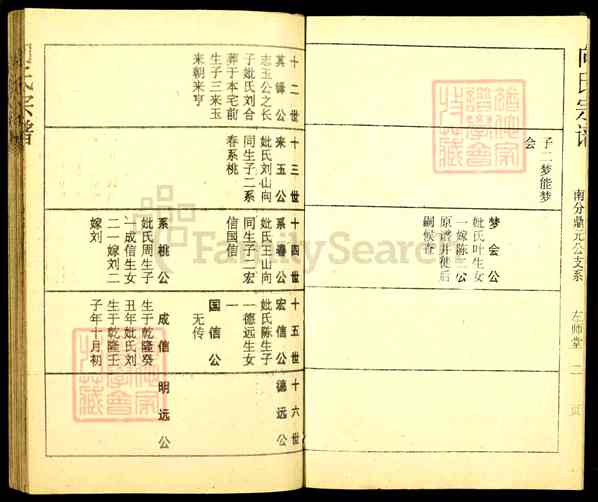 向氏宗谱
南分鼎元公支系
左师堂
二
页
子二梦能梦
会
梦会公
妣氏叶生女
一嫁陈二公
原谱并徙后
嗣候查
十二世
其锋公
志玉公之长
子妣氏刘合
葬于本宅前
生子三来玉
来朝来亨
十三世
来玉公
妣氏刘山向
同生子二系
春系桃
十四世
系春公
妣氏王山向
同生子二宏
信国信
系桃公
妣氏周生子
一成信生女
二一嫁刘二
嫁刘
十五世
宏信公
妣氏陈生子
一德远生女
一
国信公
无传
成信公
生于乾隆癸
丑年妣氏刘
生于乾隆壬
子年十月初
十六世
德远公
明远公
FamilySearch